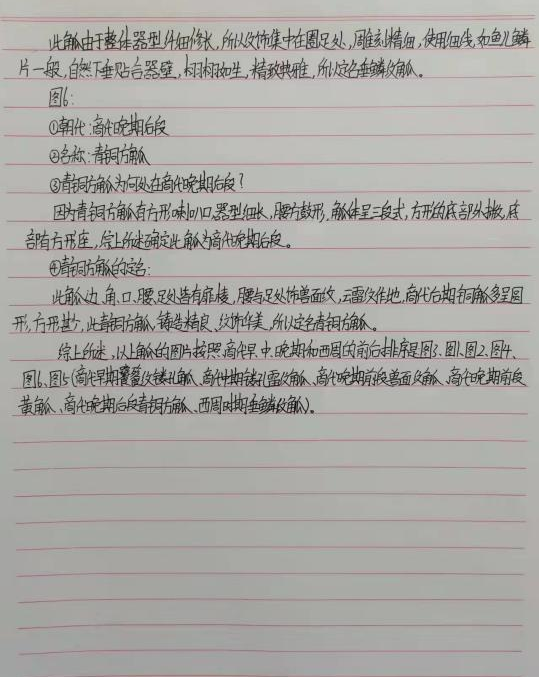 此觚由于整体器型纤细修长，所以纹饰集中在圈足处，周雕刻精细，使用细线，如鱼儿鳞
片一般，自然下垂贴合器壁，栩栩如生，精致典雅，所以定名垂鳞纹觚。
图6：
①朝代：商代晚期后段
②名称：青铜方觚
③青铜方觚为何处在商代晚期后段？
因为青铜方觚有方形喇叭口，器型细长，腰方鼓形，觚体呈三段式，方形的底部外撇，底
部有方形座，综上所述确定此觚为商代晚期后段。
④青铜方觚的定名：
此觚边、角、口、腰、足处造有扉棱，腰与足处饰兽面纹，云雷纹作地，商代后期铜觚多呈圆
形，方形甚少，此青铜方觚，铸造精良，纹饰华美，所以定名青铜方觚。
综上所述，以上觚的图片按照商代早、中、晚期和西周的前后排序是图3、图1、图2、图4、
图6、图5（商代早期饕餮纹镂孔觚、商代中期镂孔雷纹觚、商代晚期前段兽面纹觚、商代晚期前段
黄觚、商代晚期后段青铜方觚、西周时期垂鳞纹觚）。